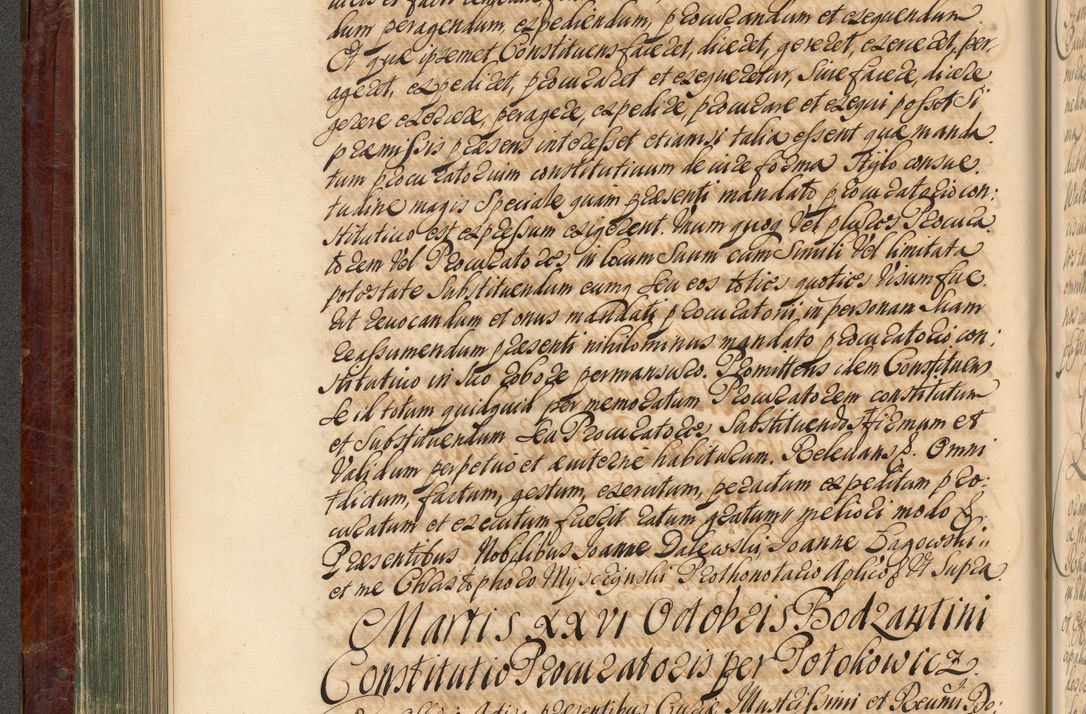 dum peragendum, expediendum, procurandum et exequendum
Et quæ ipsemet Constituens faceret, diceret, gereret, exerceret, per
ageret, expediret, procuraret et exequeretur, Sive facere, dicere
gerere exercere, peragere, expedire, procurare et exequi posset Si
præmissis præsens interesset etiamsi talia essent quæ manda
tum procuratorium constitutivum de iure forma Stylo consue.
tudine magis Speciale quam præsenti mandato procuratorio con:
stitutivo est expressum exigerent. Unum quoq Vel plures, Procura
torem Vel Procuratores in locum Suum cum Simili Vel limitata
potestate Substituendum eumq Seu eos toties quoties Visum fue.
rit revocandum et onus mandati procuratorii, in personam Suam
reassumendum præsenti nihilominus mandato procuratorio con:
stitutivo in Suo robore permansuro. Promittens idem Constituens
Se id totum quidquid per memoratum Procuratorem constitutum
et Substituendum Seu Procuratores Substituendos firmum et
Validum perpetuo et æviterne habiturum. Relevans &. Omni
dictum, factum, gestum, exercitum, peractum expeditum pro:
curatum et executum fuerit ratum gratum meliori modo &.
Præsentibus Nobilibus Joanne Dalewski, Joanne Bagowski
et me Christophoro Mysorynski Prothonotario Aplico & Ut Supra.
Martis XXVI Octobris Bodzantini
Constitutio Procuratoris per Potokowicz.
præsentibus Illustrissimi et Reumi